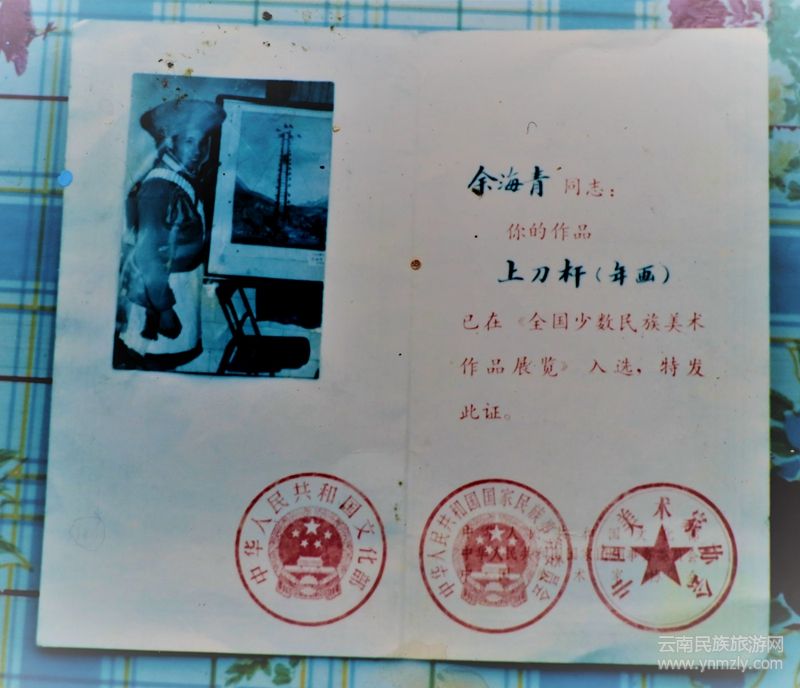 余海青 同志：
你的作品
上刀杆（年画）
已在《全国少数民族美术
作品展览》入选，特发
此证。
中华人民共和国文化部
中华人民共和国国家民族事务委员会
中国美术家协会
云南民族旅游网
www.ynmzly.com